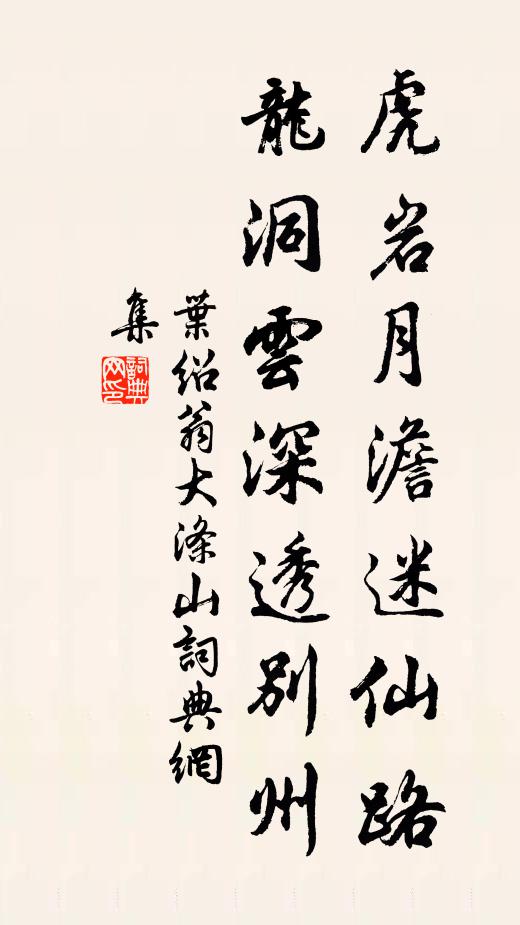 虎岩月澹迷仙路
龍洞雲深透別州
葉紹翁大滌山詞典網
集
詞典網印